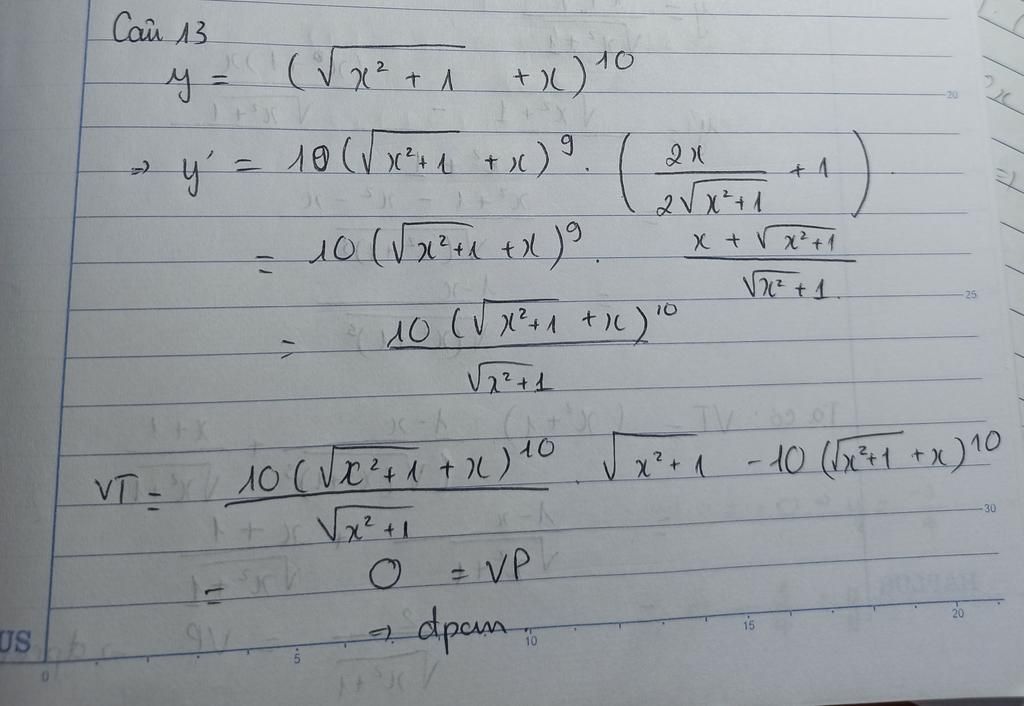 Câu 13
y = (√(x² + 1) + x)¹⁰
⇒ y' = 10(√(x²+1) + x)⁹ . (2x / 2√(x²+1) + 1)
= 10(√(x²+1) + x)⁹ . (x + √(x²+1)) / √(x²+1)
= 10(√(x²+1) + x)¹⁰ / √(x²+1)
VT = 10(√(x²+1) + x)¹⁰ / √(x²+1) . √(x²+1) - 10(√(x²+1) + x)¹⁰
= 0 = VP
⇒ đpcm.
US
0 5 10 15 20
20
25
30